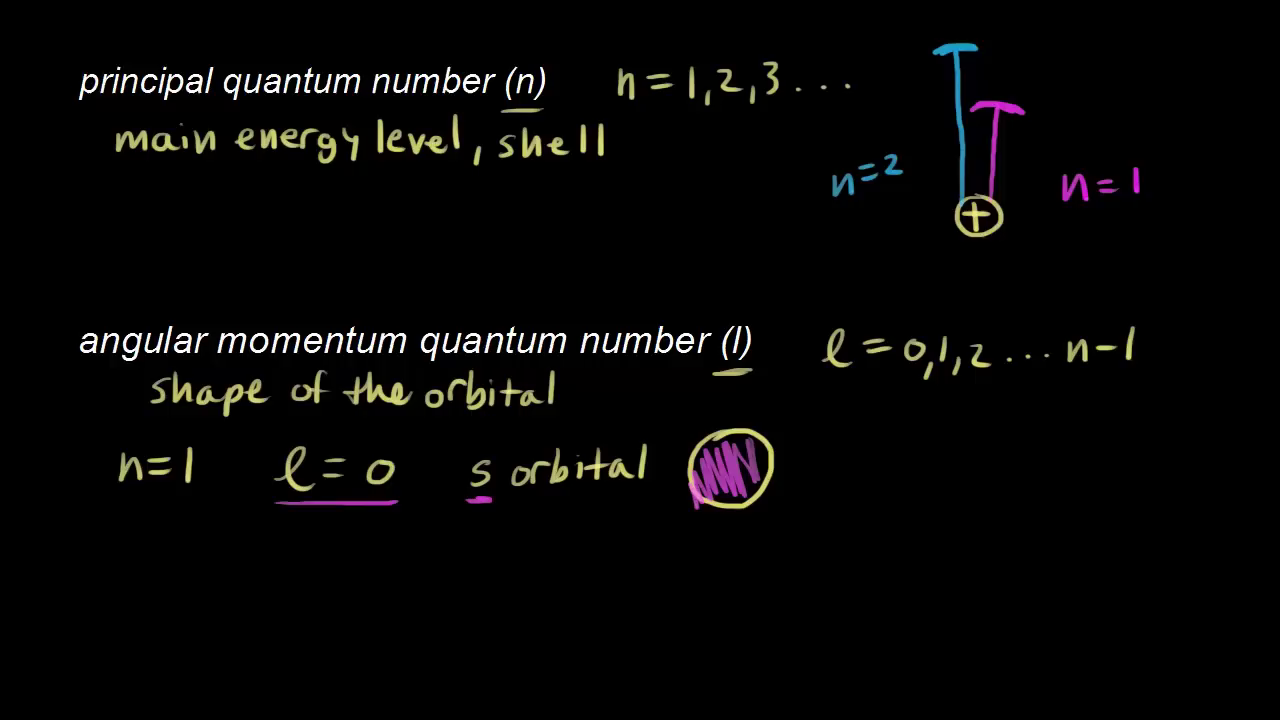 principal quantum number (n) n = 1, 2, 3 ...
main energy level, shell
n=2 n=1
+
angular momentum quantum number (l) l = 0, 1, 2 ... n-1
shape of the orbital
n=1 l = 0 s orbital